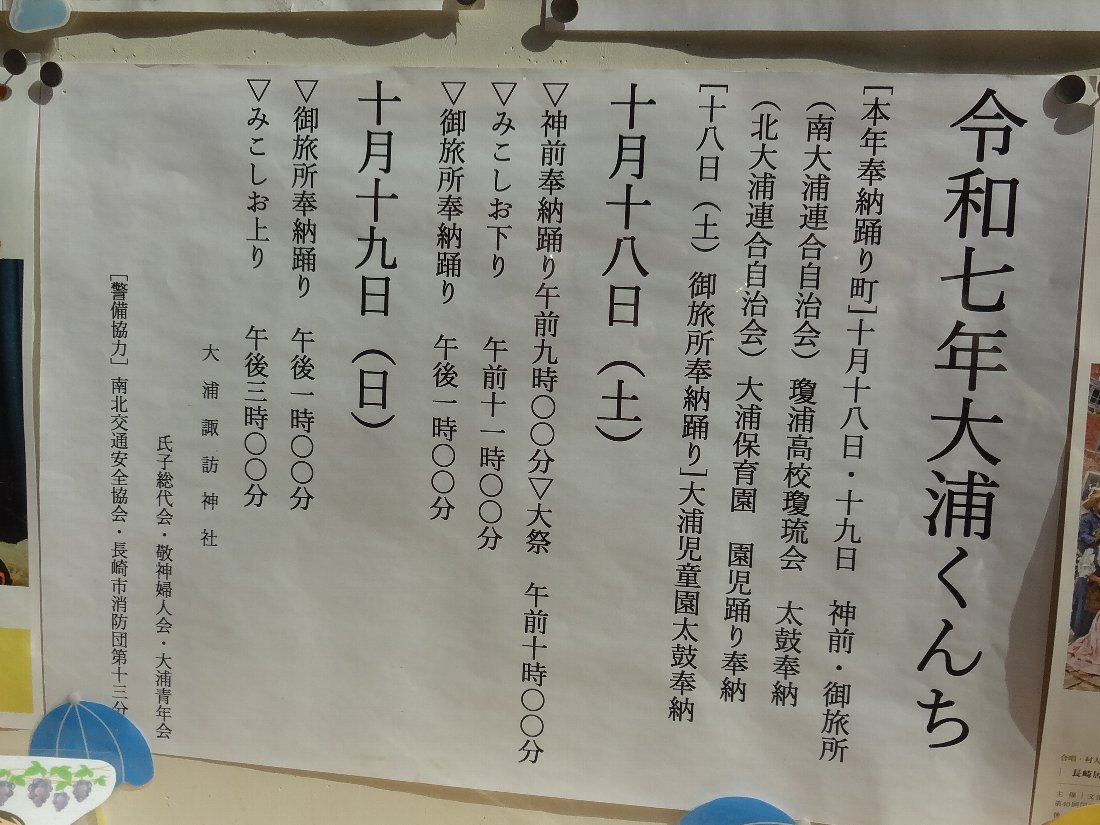 令和七年大浦くんち
［本年奉納踊り町］十月十八日・十九日　神前・御旅所
（南大浦連合自治会）瓊浦高校瓊琉会　太鼓奉納
（北大浦連合自治会）大浦保育園　園児踊り奉納
［十八日（土）御旅所奉納踊り］大浦児童園太鼓奉納
十月十八日（土）
▽神前奉納踊り午前九時〇〇分▽大祭　午前十時〇〇分
▽みこしお下り　午前十一時〇〇分
▽御旅所奉納踊り　午後一時〇〇分
十月十九日（日）
▽御旅所奉納踊り　午後一時〇〇分
▽みこしお上り　午後三時〇〇分
大浦諏訪神社
氏子総代会・敬神婦人会・大浦青年会
［警備協力］南北交通安全協会・長崎市消防団第十三分
合唱・村人
長崎居
主催